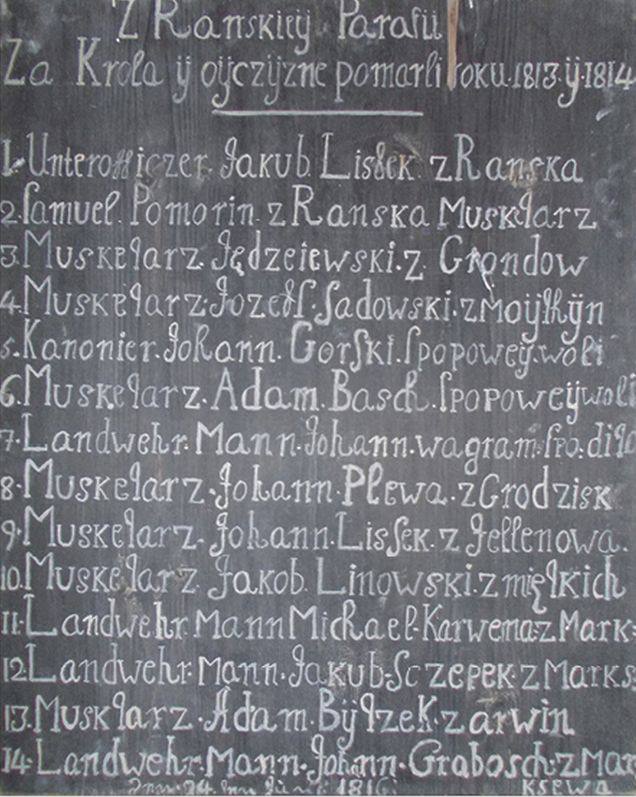 Z Ranskiey Parafii
Za Krola ÿ oÿczÿzne pomarli roku 1813.ÿ.1814
1. Unterofficzer Jakub Lissek z Ranska
2. Samuel Pomorin z Ranska Muskȩlarz
3. Muskelarz Jędzeiewski z Grondow
4. Muskelarz Jozeff Sadowski z Moÿtÿn
5. Kanonier Johann Gorski s popoweÿ woli
6. Muskelarz Adam Basch s popoweÿ woli
7. Landwehr Mann Johann wagram
8. Muskelarz Johann Plewa z Grodzisk
9. Muskelarz Johann Lissek z Jellenowa.
10. Muskelarz Jakob Linowski z miętkich
11. Landwehr Mann Michael Karwema z Mark:
12. Landwehr Mann Jakub Sczepek z Marks:
13. Musklarz Adam Bÿlzek z arwin
14. Landwehr Mann Johann Grabosch z Mar
24. Juni 1816 KSEWA